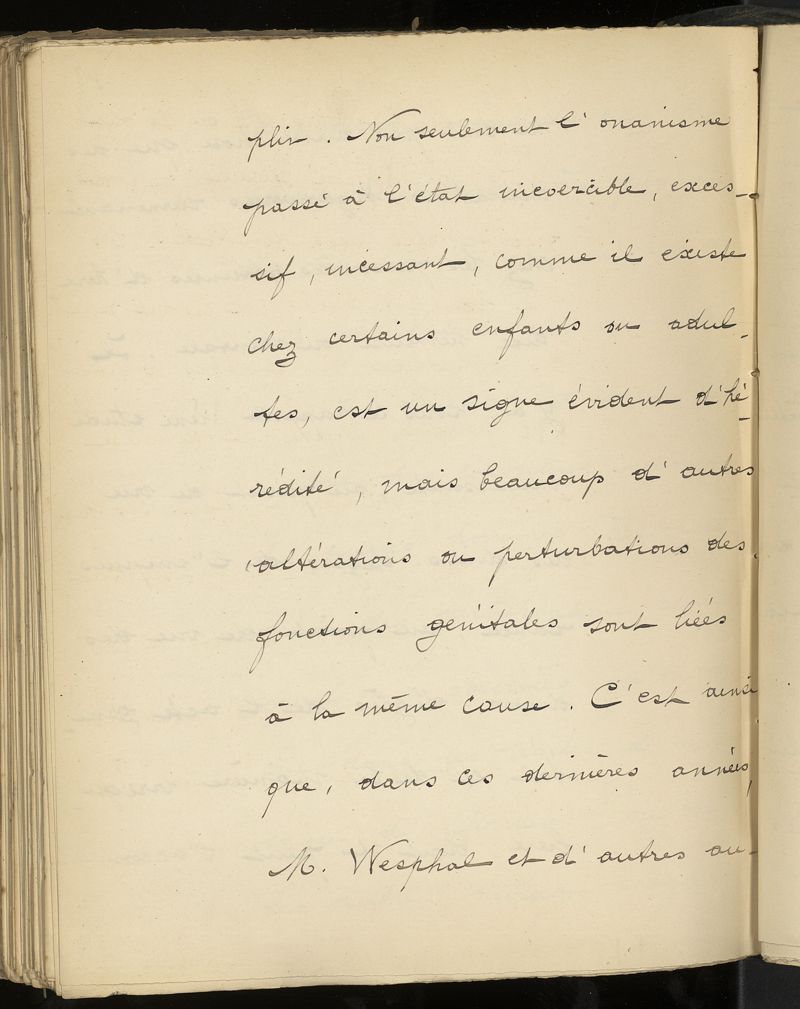 plir. Non seulement l'onanisme
passé à l'état incoercible, exces-
sif, incessant, comme il existe
chez certains enfants ou adul-
tes, est un signe évident d'hé-
rédité, mais beaucoup d'autres
altérations ou perturbations des
fonctions génitales sont liées
à la même cause. C'est ainsi
que, dans ces dernières années,
M. Wesphal et d'autres au-